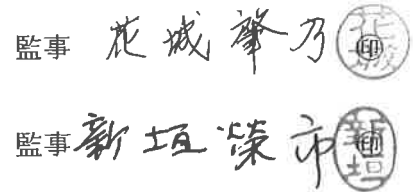 監事 花城肇乃 ㊞
監事 新垣榮市 ㊞